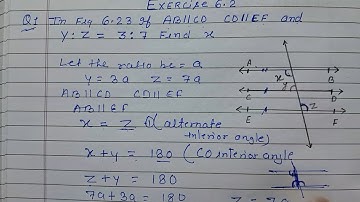 Exercise 6.2
Q: In Fig 6.23 if AB||CD CD||EF and
y:z = 3:7 Find x
Let the ratio be = a
y = 3a z = 7a
AB||CD CD||EF
AB||EF
x = z (alternate
interior angle)
x+y = 180 (CO interior angle
z+y = 180
7a+3a = 180 z = 7a
A B
x
y
C D
z
E F